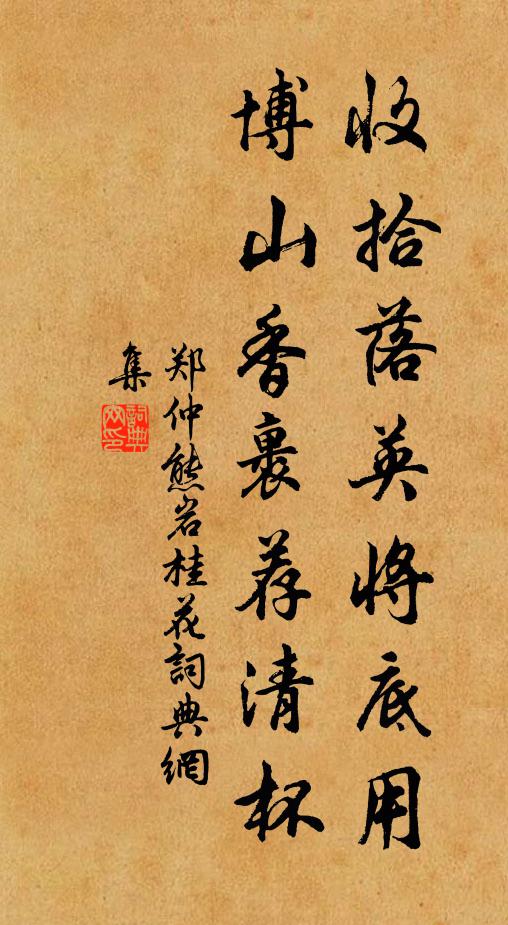 收拾落英将底用
博山香裹荐清杯
郑仲熊岩桂花詞典網
集
詞典网印